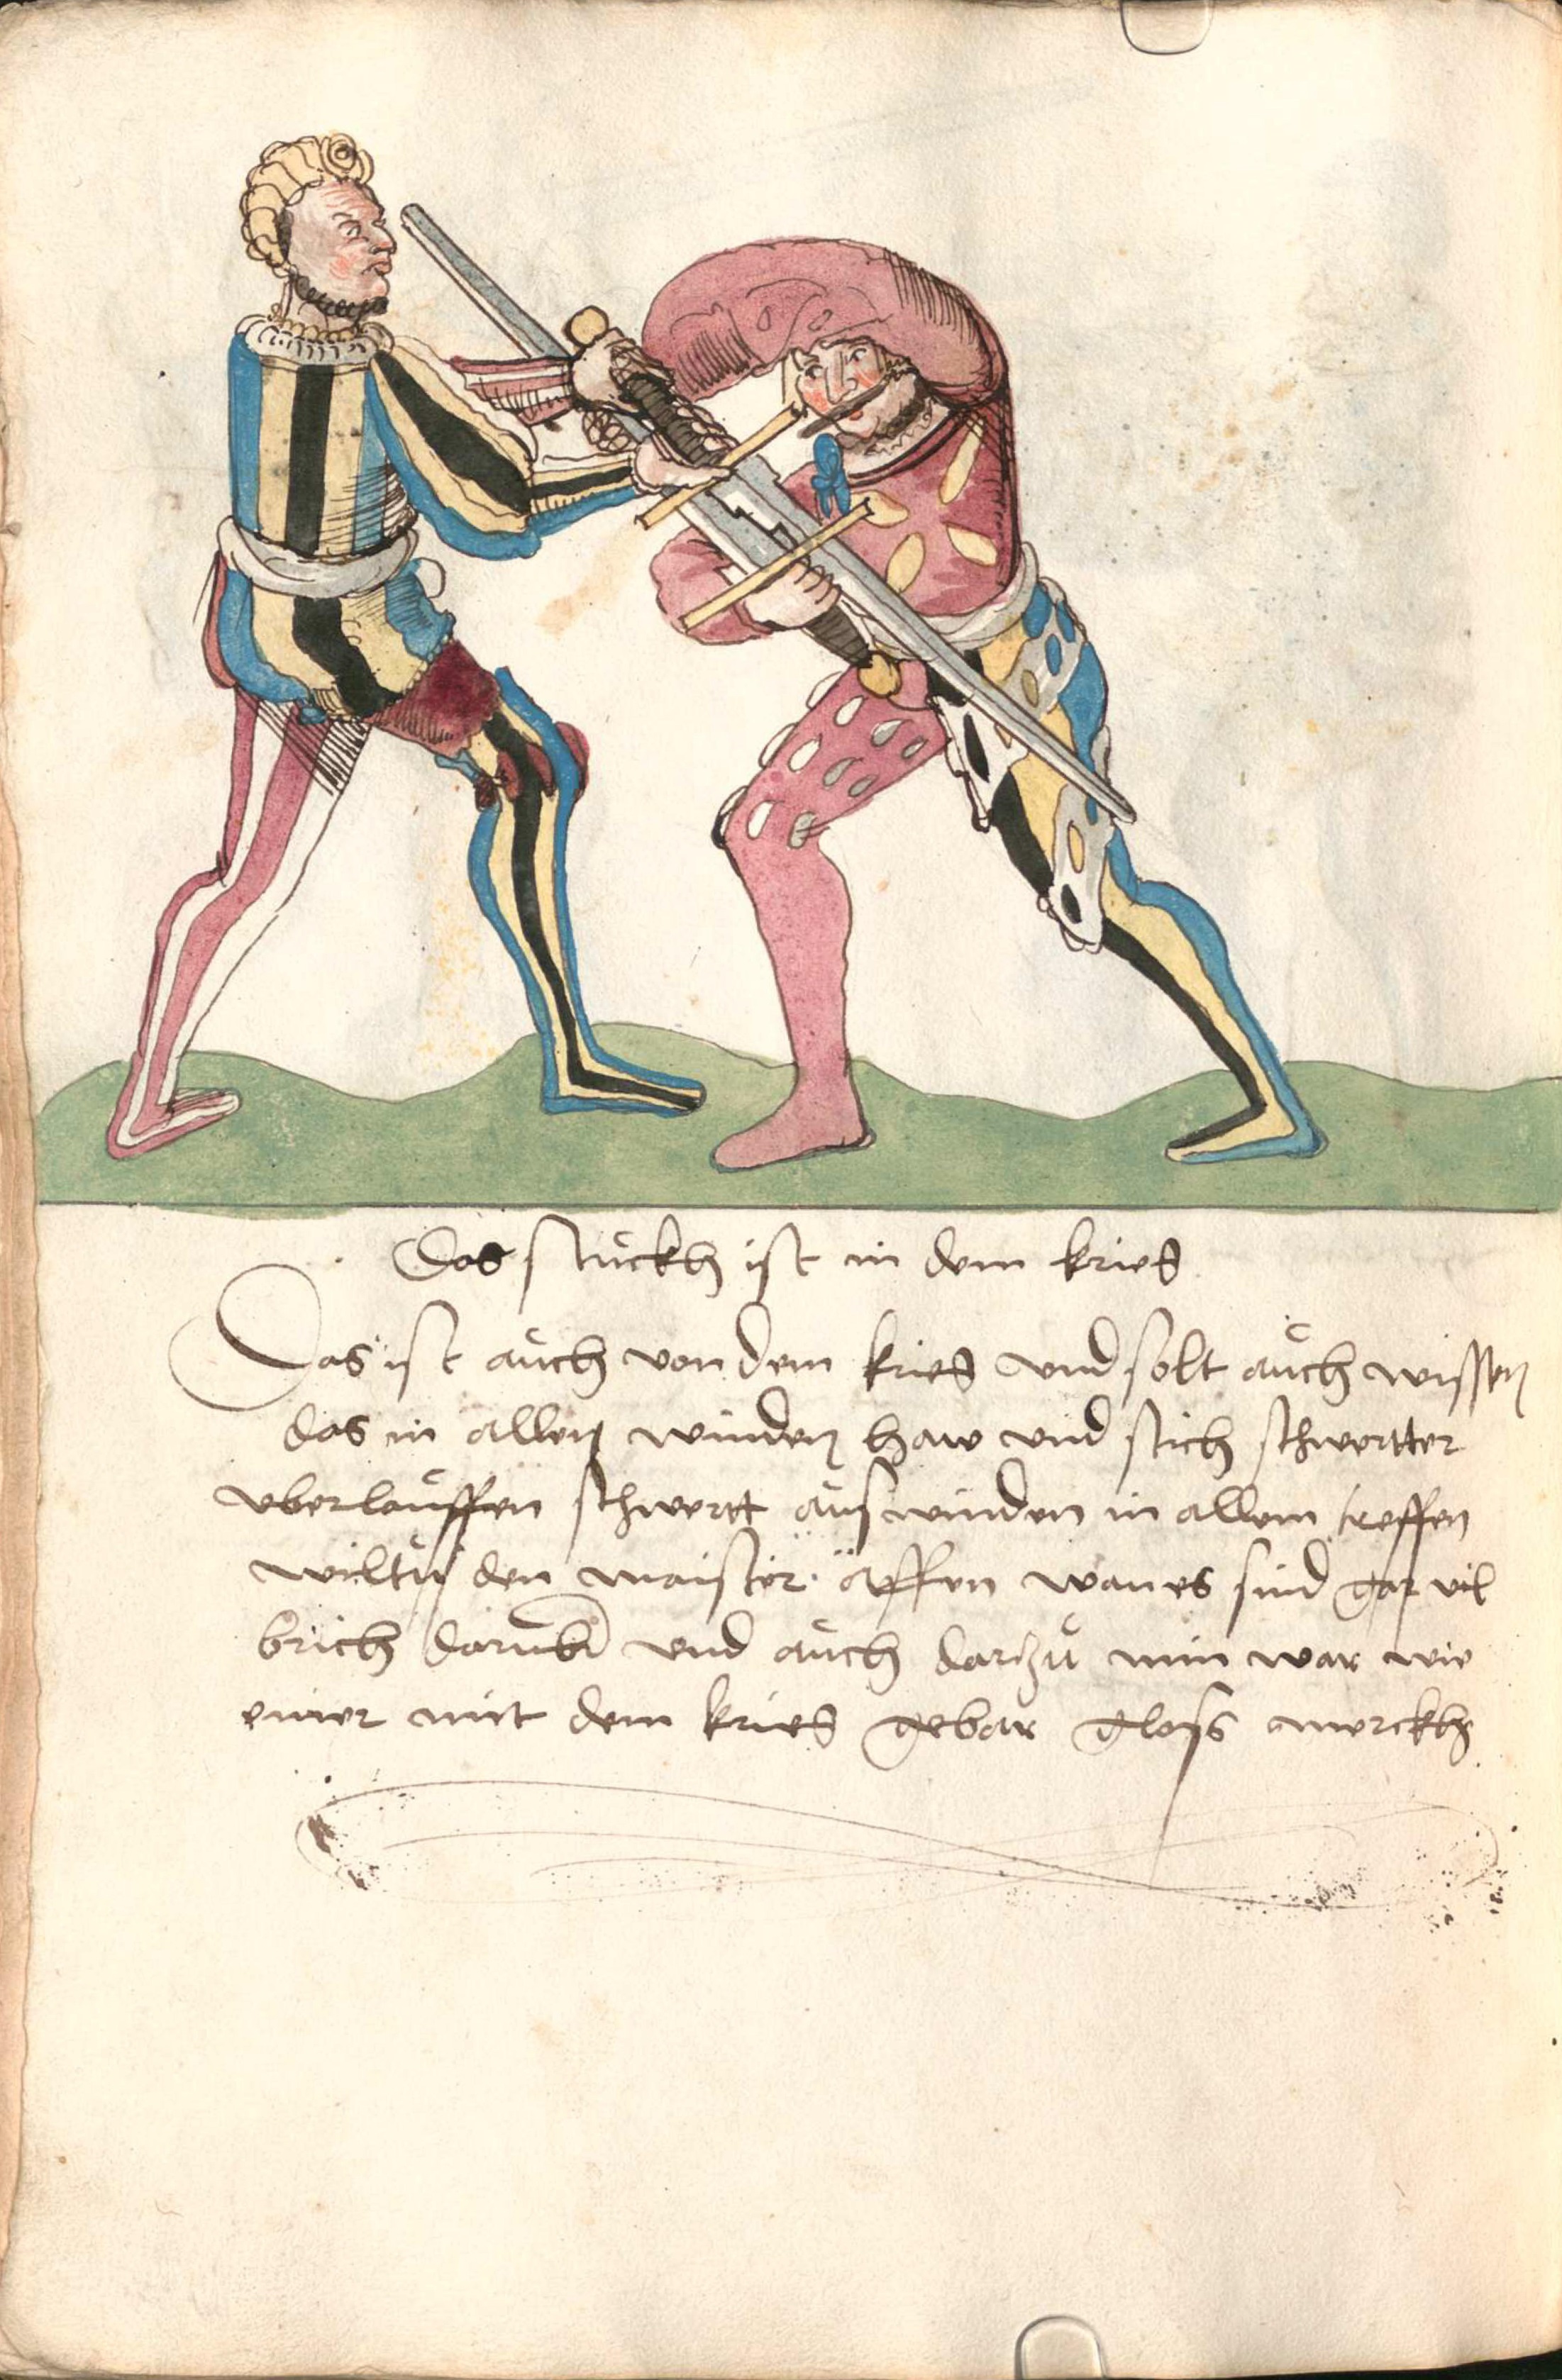 Das stuckh ist in dem kries
Das ist auch von dem kries vnd solt auch wissen
das in allen winden haw vnd stich schwertter
vberlauffen schwertt aus winden in allem treffen
wiltu den maister äffen wan es sind gar vil
brich darumb vnd auch darzu nim war wie
einer mit dem kries gebar gloss merckh